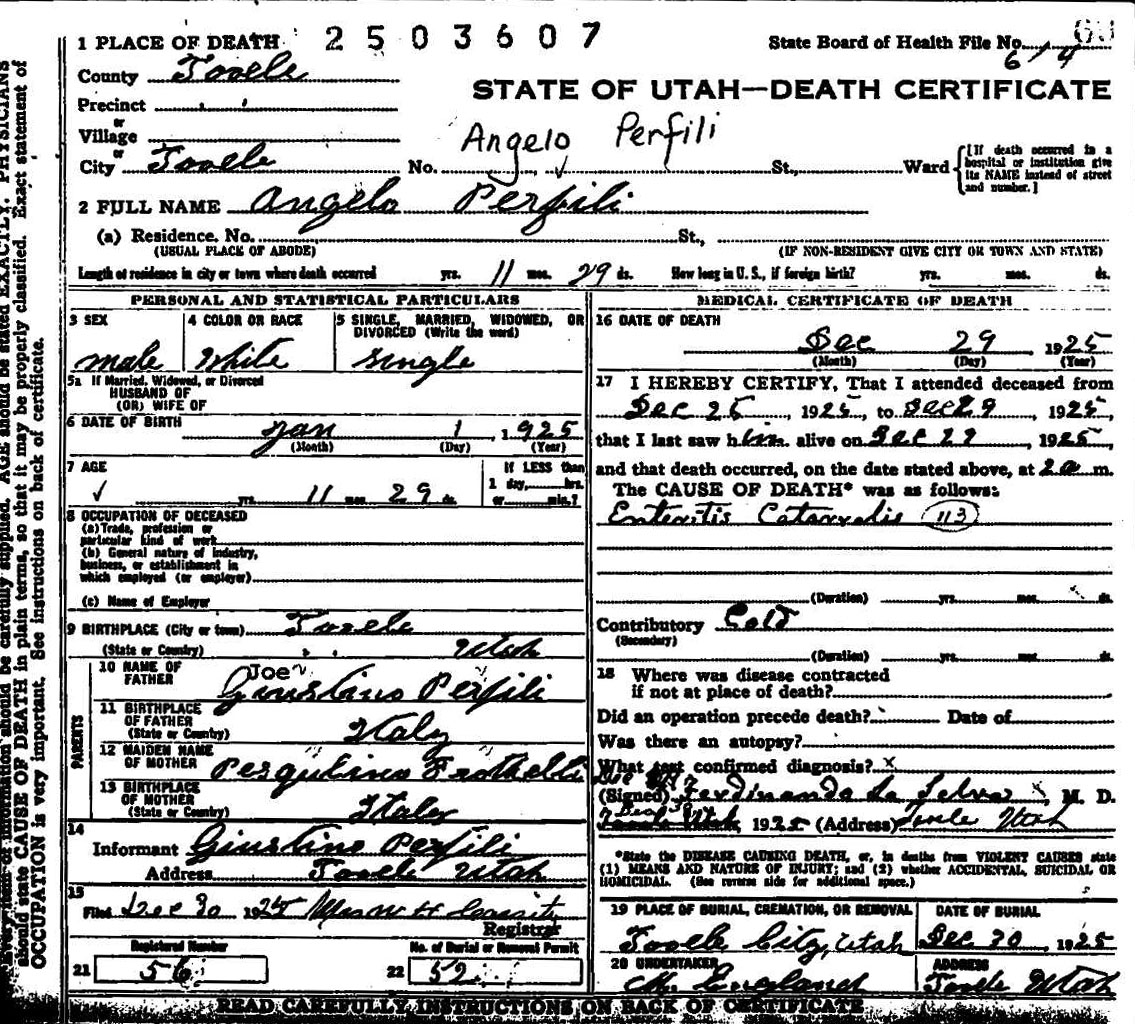 1 PLACE OF DEATH 2503607
State Board of Health File No. 614
County Tooele
STATE OF UTAH—DEATH CERTIFICATE
Precinct
or
Village
Angelo Perfili
or
City Tooele No. St., Ward [If death occurred in a hospital or institution give its NAME instead of street and number.]
2 FULL NAME Angelo Perfili
(a) Residence. No. St.,
(USUAL PLACE OF ABODE) (IF NON-RESIDENT GIVE CITY OR TOWN AND STATE)
Length of residence in city or town where death occurred yrs. 11 mos. 29 ds. How long in U. S., if foreign birth? yrs. mos. ds.
PERSONAL AND STATISTICAL PARTICULARS
3 SEX
male
4 COLOR OR RACE
White
5 SINGLE, MARRIED, WIDOWED, OR
DIVORCED (Write the word)
Single
5a If Married, Widowed, or Divorced
HUSBAND OF
(OR) WIFE OF
6 DATE OF BIRTH Jan 1, 1925
(Month) (Day) (Year)
7 AGE
yrs. 11 mos. 29 ds.
If LESS than
1 day, hrs.
or min.?
8 OCCUPATION OF DECEASED
(a) Trade, profession or
particular kind of work
(b) General nature of industry,
business, or establishment in
which employed (or employer)
(c) Name of Employer
9 BIRTHPLACE (City or town) Tooele
(State or Country) Utah
PARENTS
10 NAME OF
FATHER
Joe
Giustino Perfili
11 BIRTHPLACE
OF FATHER
(State or Country) Italy
12 MAIDEN NAME
OF MOTHER
13 BIRTHPLACE
OF MOTHER
(State or Country) Italy
14
Informant Giustino Perfili
Address Tooele Utah
15
Filed Dec 30 1925
Registrar
Registered Number
21 56
No. of Burial or Removal Permit
22 52
MEDICAL CERTIFICATE OF DEATH
16 DATE OF DEATH
Dec 29 1925
(Month) (Day) (Year)
17 I HEREBY CERTIFY, That I attended deceased from
Dec 25, 1925, to Dec 29, 1925,
that I last saw him alive on Dec 29 1925,
and that death occurred, on the date stated above, at 2 a m.
The CAUSE OF DEATH* was as follows:
Enteritis Catarralis 113
(Duration) yrs. mos. ds.
Contributory Cold
(Secondary)
(Duration) yrs. mos. ds.
18 Where was disease contracted
if not at place of death?
Did an operation precede death? Date of
Was there an autopsy?
What test confirmed diagnosis? x
(Signed) Ferdinando La Selva, M. D.
1925 (Address) Tooele Utah
*State the DISEASE CAUSING DEATH, or, in deaths from VIOLENT CAUSES state
(1) MEANS AND NATURE OF INJURY; and (2) whether ACCIDENTAL, SUICIDAL OR
HOMICIDAL. (See reverse side for additional space.)
19 PLACE OF BURIAL, CREMATION, OR REMOVAL
Tooele City, Utah
DATE OF BURIAL
Dec 30, 1925
20 UNDERTAKER
M. England
ADDRESS
Tooele Utah
READ CAREFULLY INSTRUCTIONS ON BACK OF CERTIFICATE
information should be carefully supplied. AGE should be stated EXACTLY. PHYSICIANS
should state CAUSE OF DEATH in plain terms, so that it may be properly classified. Exact statement of
OCCUPATION is very important. See instructions on back of certificate.